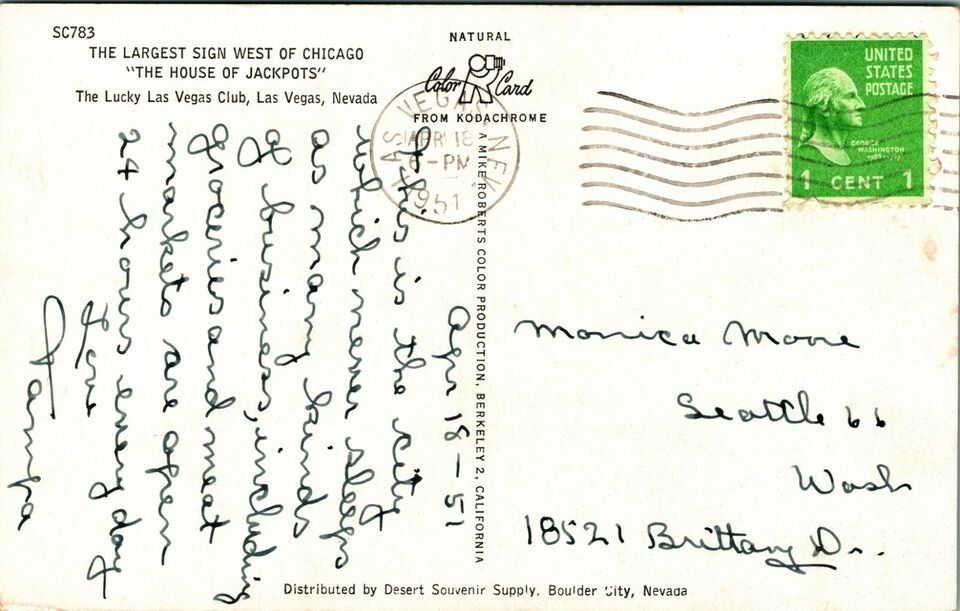 SC783
THE LARGEST SIGN WEST OF CHICAGO
"THE HOUSE OF JACKPOTS"
The Lucky Las Vegas Club, Las Vegas, Nevada
NATURAL
Color Card
FROM KODACHROME
LAS VEGAS NEV.
APR 18
PM
1951
UNITED
STATES
POSTAGE
GEORGE
WASHINGTON
1789-1797
1 CENT 1
A MIKE ROBERTS COLOR PRODUCTION, BERKELEY 2, CALIFORNIA
Apr 18 - 51
This is the city
which never sleeps
as many kinds
of business, including
groceries and meat
markets are open
24 hours every day
Love
Gampa
Monica Moore
Seattle 66
Wash
18521 Brittany Dr..
Distributed by Desert Souvenir Supply, Boulder City, Nevada